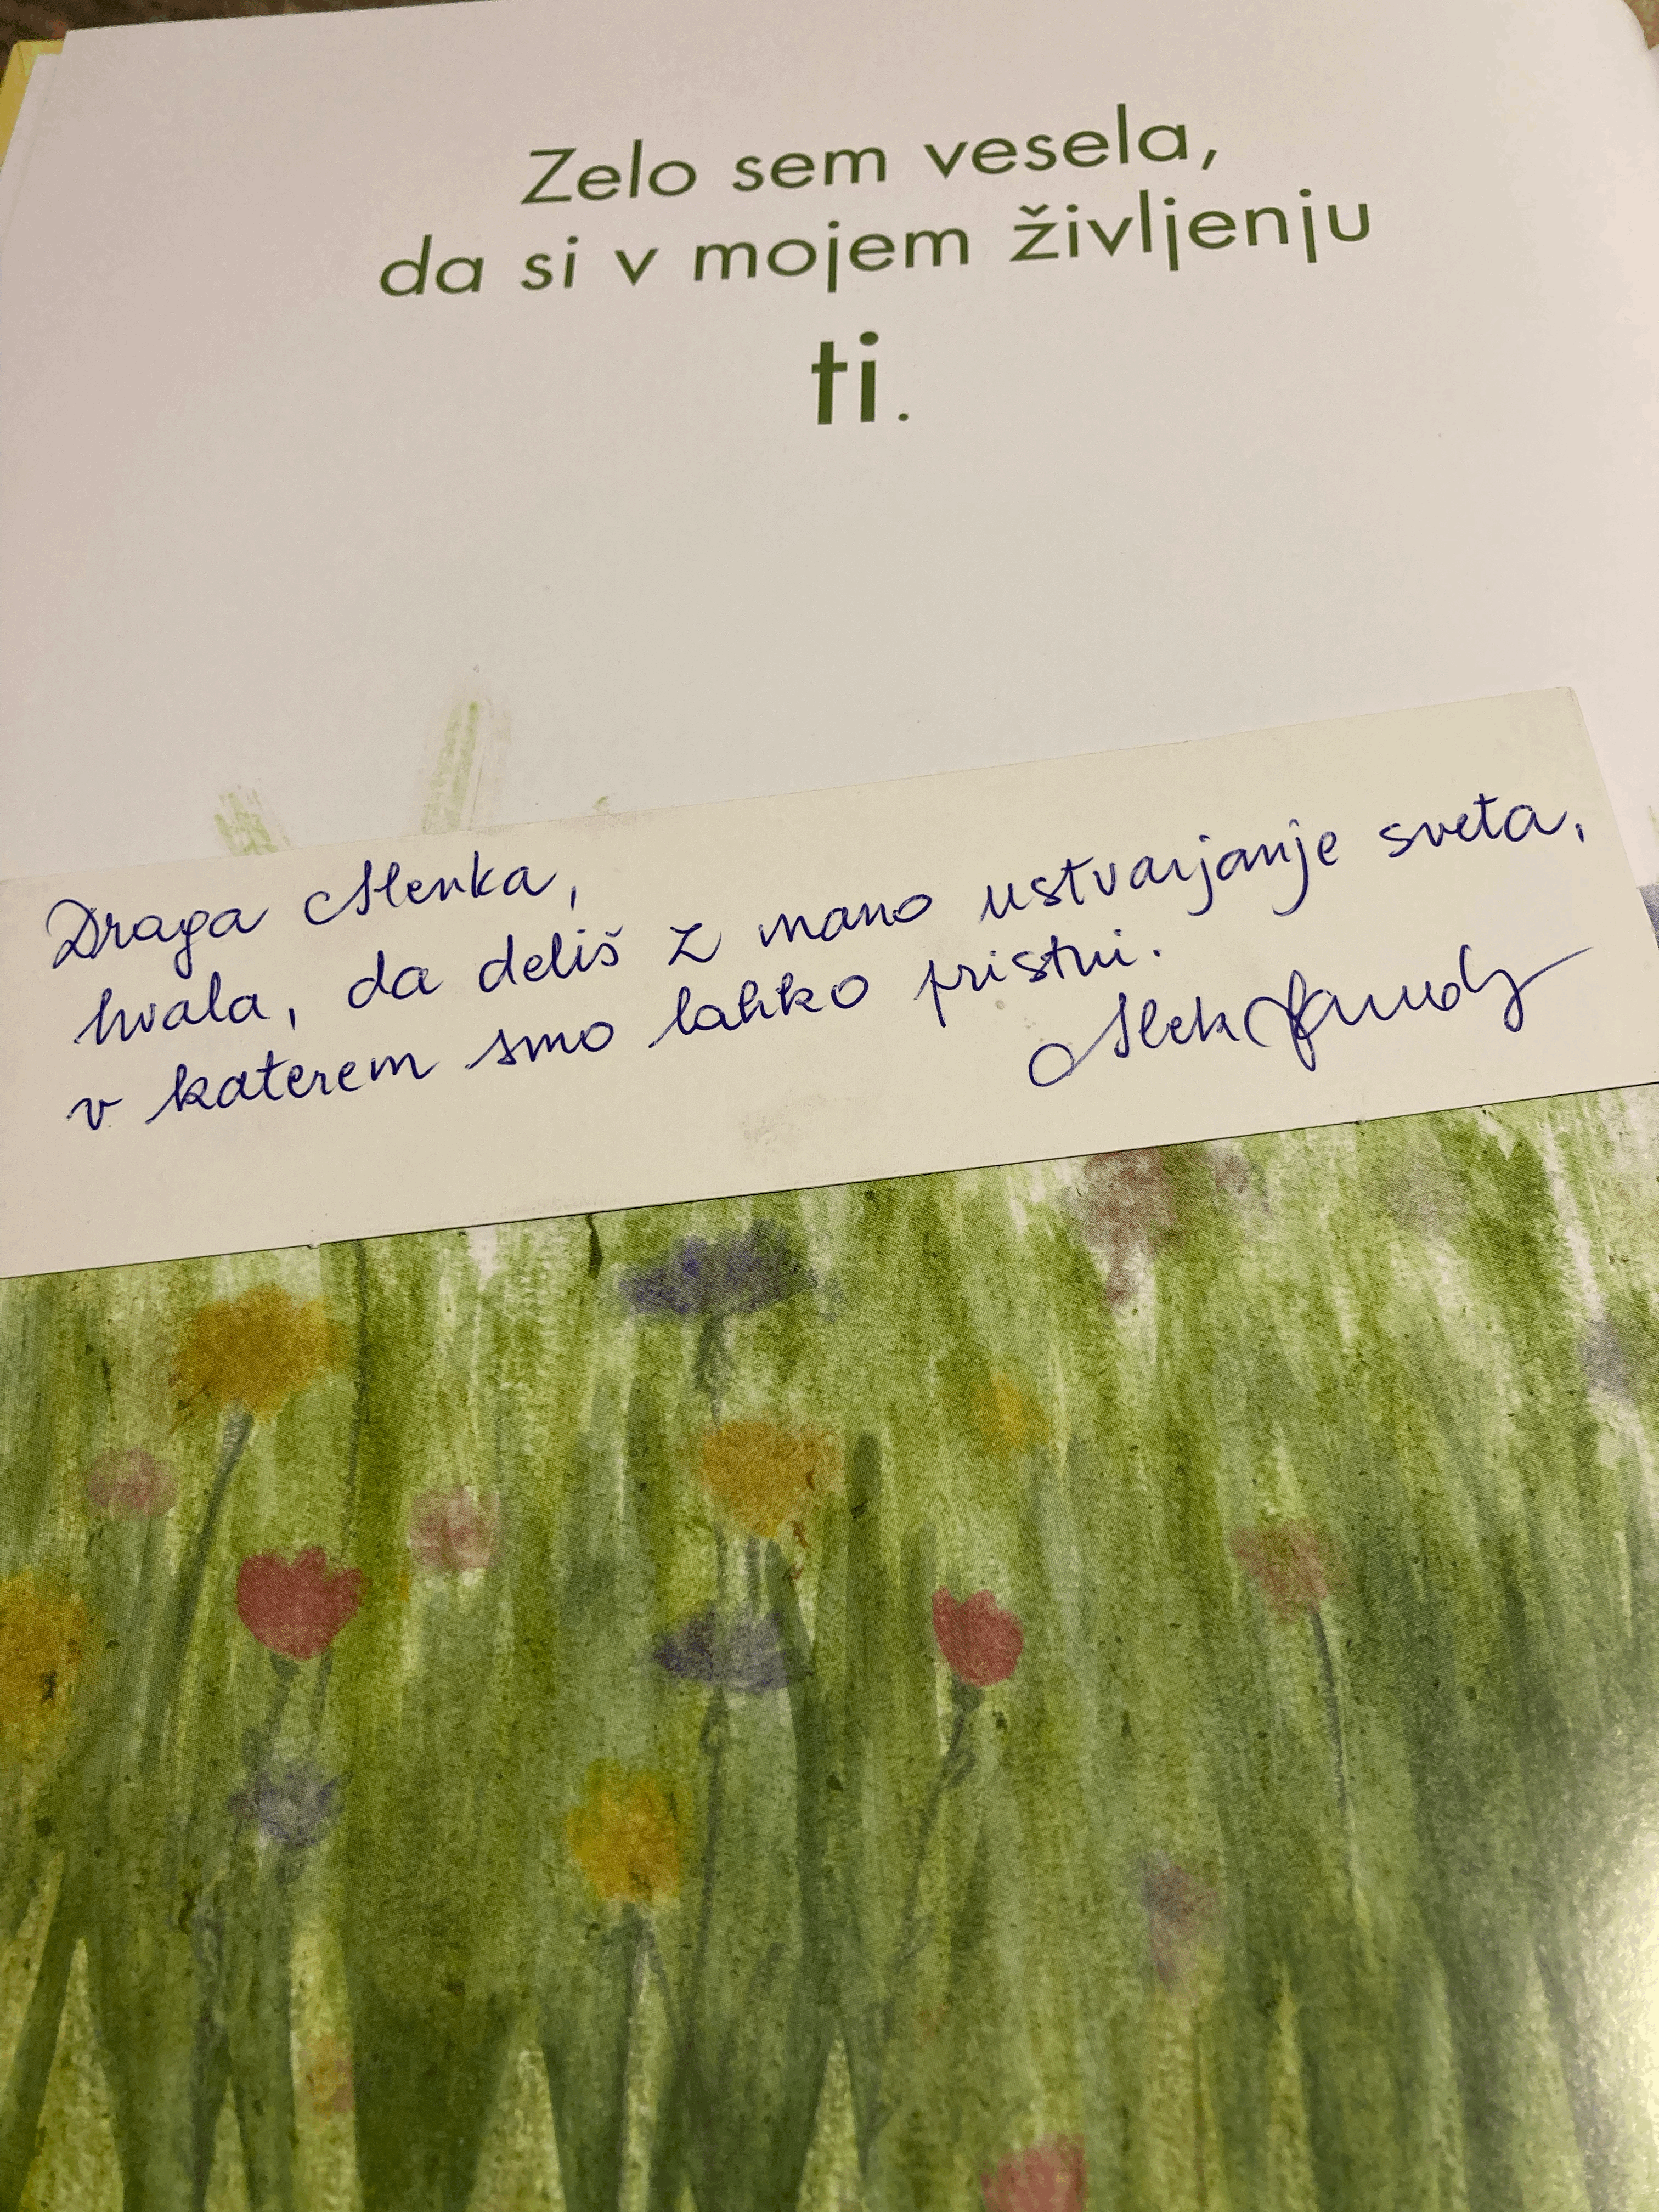 Zelo sem vesela,
da si v mojem življenju
ti.
Draga Alenka,
hvala, da deliš z mano ustvarjanje sveta,
v katerem smo lahko pristni.